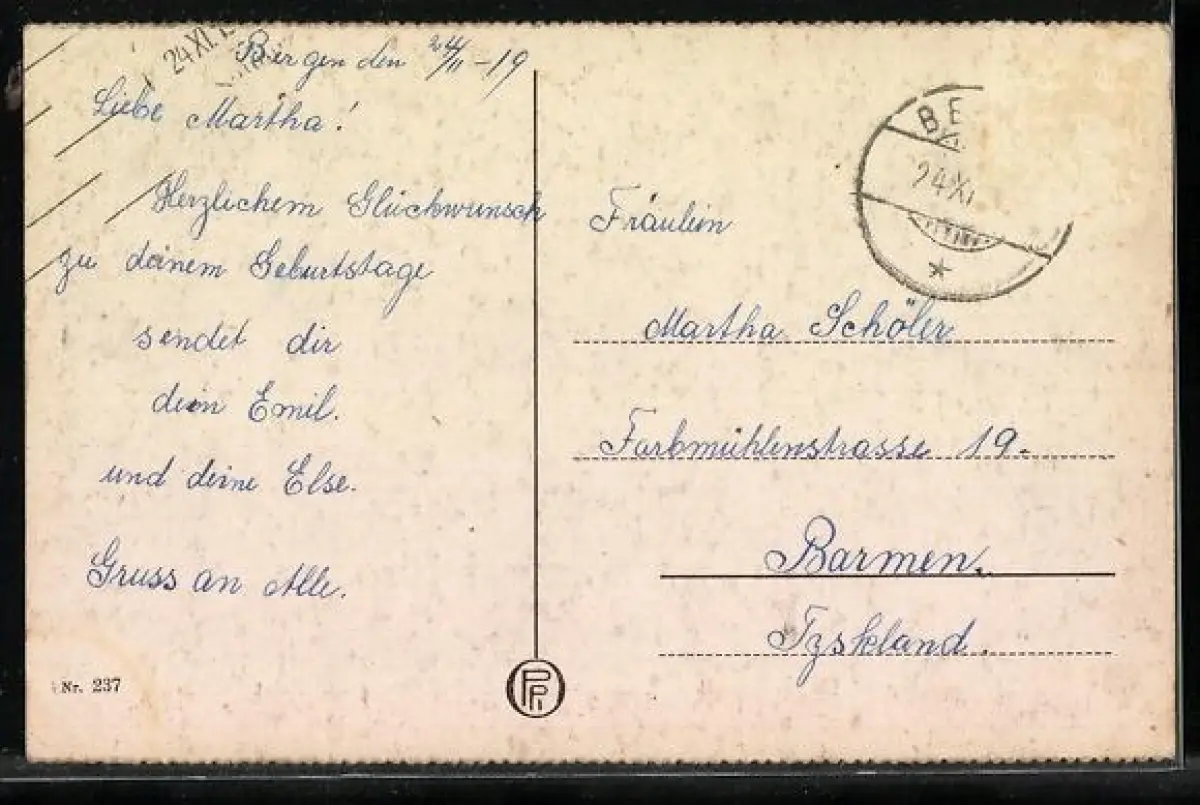 24 XI
Bergen den 24/11 - 19
Liebe Martha!
Herzlichem Glückwunsch
zu deinem Geburtstage
sendet dir
dein Emil.
und deine Else.
Gruss an Alle.
Nr. 237
BE
24 XI
Fräulein
Martha Schöler
Farbmühlenstrasse 19.
Barmen.
Tyskland.